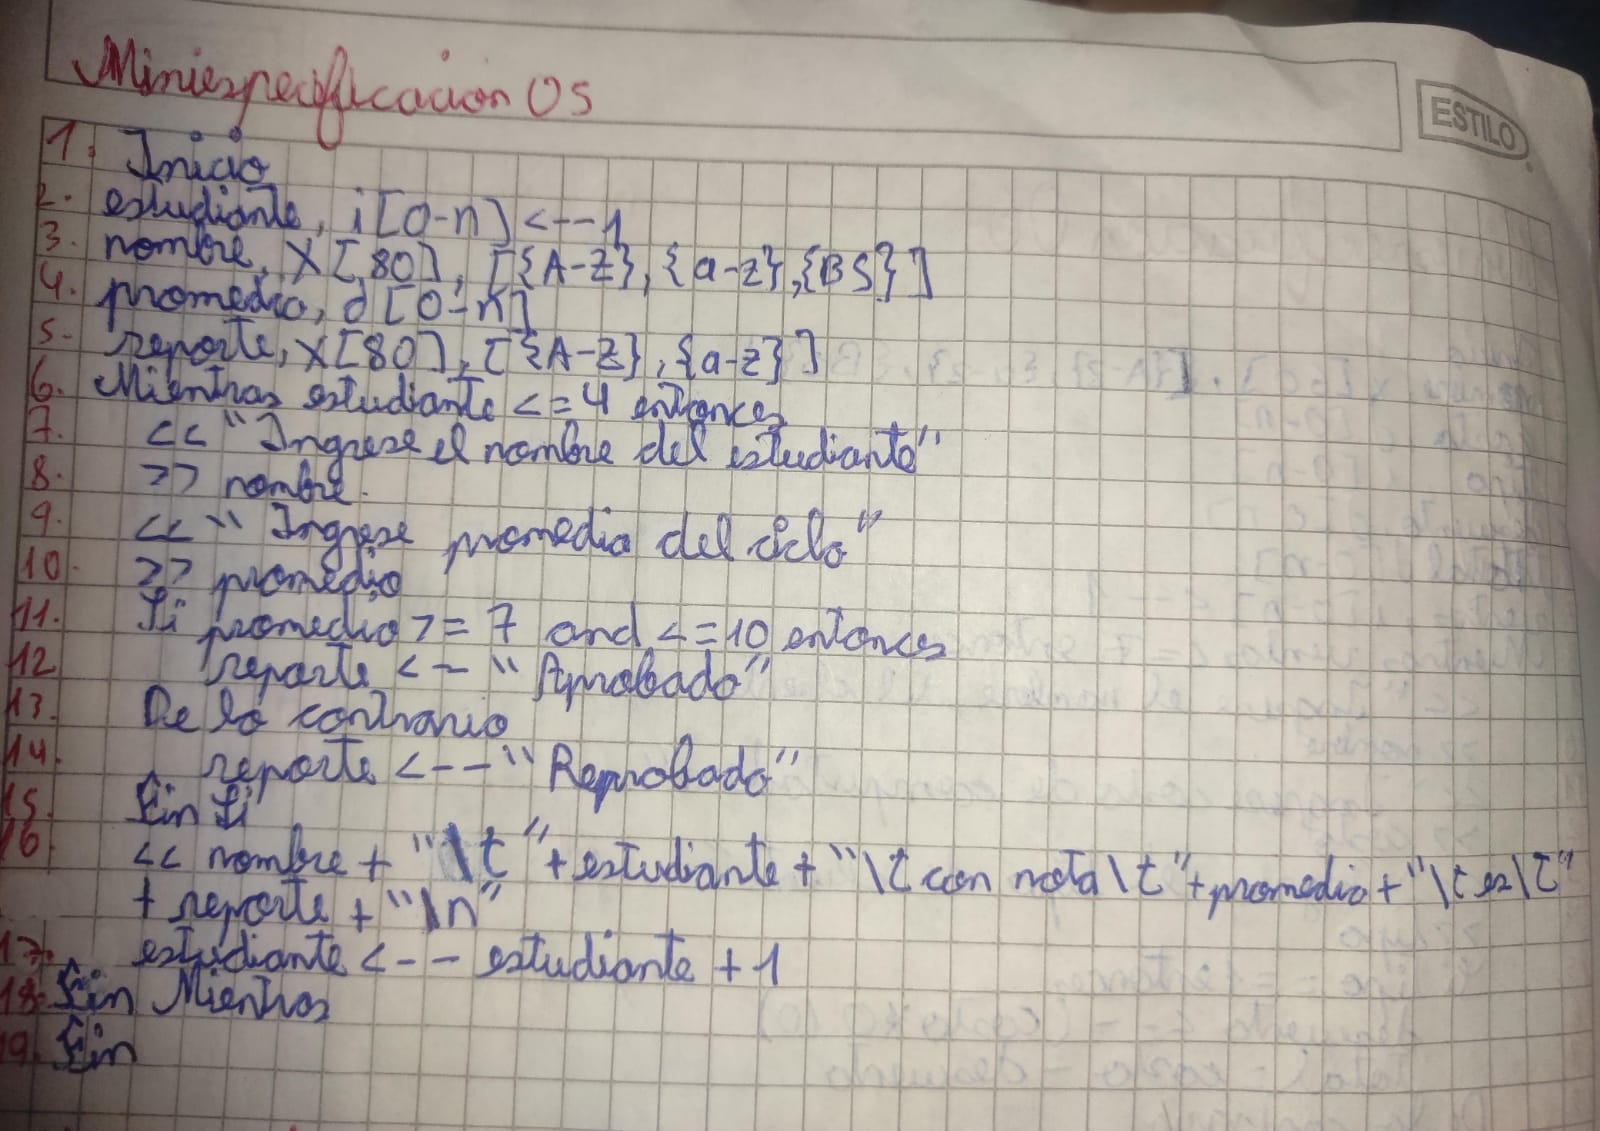 Miniespecificacion 05
ESTILO
1. Inicio
2. estudiante, i[0-n] <--1
3. nombre, X[80], [{A-Z}, {a-z},{BS}]
4. promedio, d[0-n]
5. reporte, X[80], [{A-Z}, {a-z}]
6. Mientras estudiante <=4 entonces
7. << "Ingrese el nombre del estudiante"
8. >> nombre.
9. << "Ingrese promedio del ciclo"
10. >> promedio
11. Si promedio >= 7 and <=10 entonces
12 reporte <- "Aprobado"
13. De lo contrario
14. reporte <-- "Reprobado"
15. Fin Si
16. << nombre + "\t" + estudiante + "\t con nota \t" + promedio + "\t es \t"
+ reporte + "\n"
17. estudiante <-- estudiante + 1
18. Fin Mientras
19. Fin